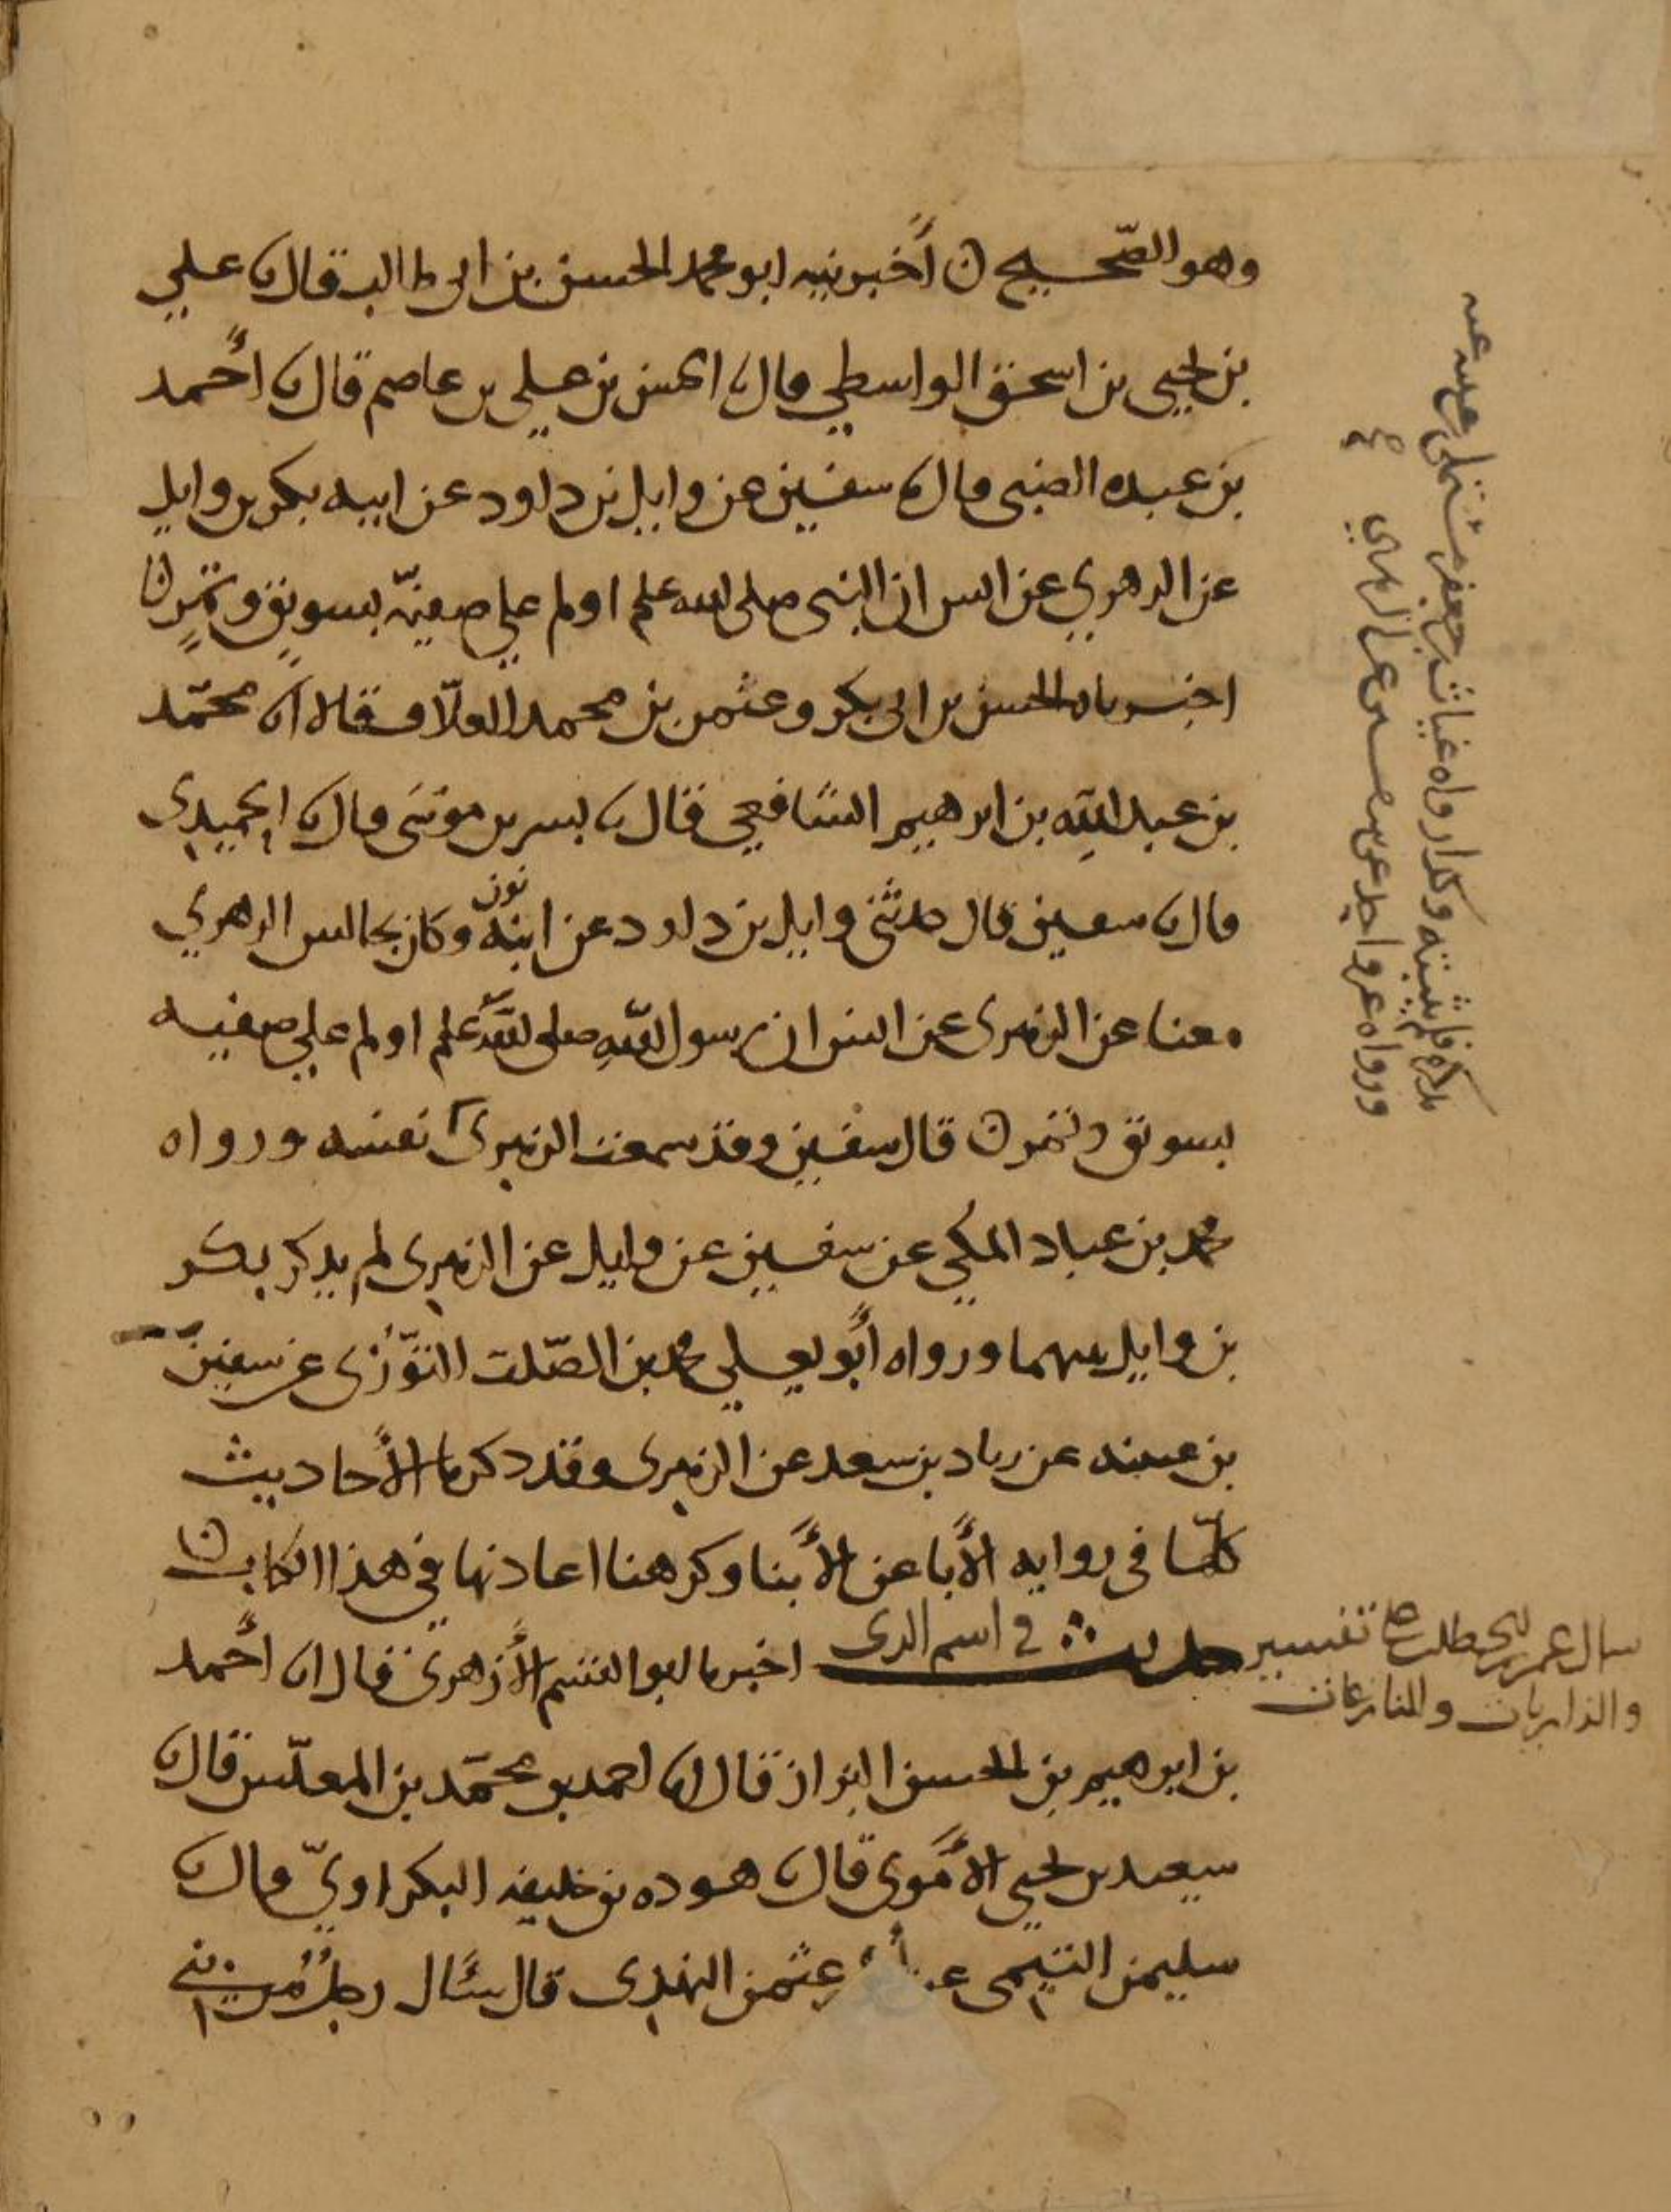 وهو الصحيح ن أخبرنيه ابو محمد الحسن بن ابى طالب قال ثنا علي
بن يحيى بن اسحق الواسطي قال ثنا الحسن بن علي بن عاصم قال ثنا أحمد
بن عبده الضبى قال ثنا سفين عن وايل بن داود عن ابيه بكر بن وايل
عن الزهري عن انس ان النبى صلى الله عليه اولم علي صفيّه بسويق وتمر ن
اخبرناه الحسن بن ابى بكر وعثمن بن محمد العلّاف قالا انا محمّد
بن عبد الله بن ابرهيم الشافعي قال ثنا بشر بن موسَى قال ثنا الحميدى
قال ثنا سفين قال حدثنى وايل بن داود عن ابنه نون وكان يجالس الزهري
معنا عن الزهرى عن انس ان رسول الله صلى الله عليه اولم علي صفيه
بسويق وتمر ن قال سفين وقد سمعت الزهرى نفسه ورواه
محمد بن عباد المكي عن سفين عن وايل عن الزهرى لم يذكر بكر
بن وايل بينهما ورواه أبو يعلي محمد بن الصّلت التوّزى عن سفين
بن عيينه عن زياد بن سعد عن الزهرى وقد ذكرنا الأحاديث
كلّها فى روايه الأبا عن الأبنا وكرهنا اعادتها في هذا الكتاب ن
حديث في اسم الذى اخبرنا ابو القسم الأزهرى قال انا أحمد
سال عمر بن الخطاب تفسير
والذاريات والنازعات
بن ابرهيم بن الحسن البزاز قال انا احمد بن محمّد بن المغلّس قال ثنا
سعيد بن يحيى الأموى قال ثنا هوده بن خليفه البكراويّ قال ثنا
سليمن التيمى عن أبى عثمن النهدى قال سئال رجلٌ من بني
وكذا رواه غياث بن جعفر مستملى بن عيينه عنه
ورواه غير واحد عن سفين عن الزهري